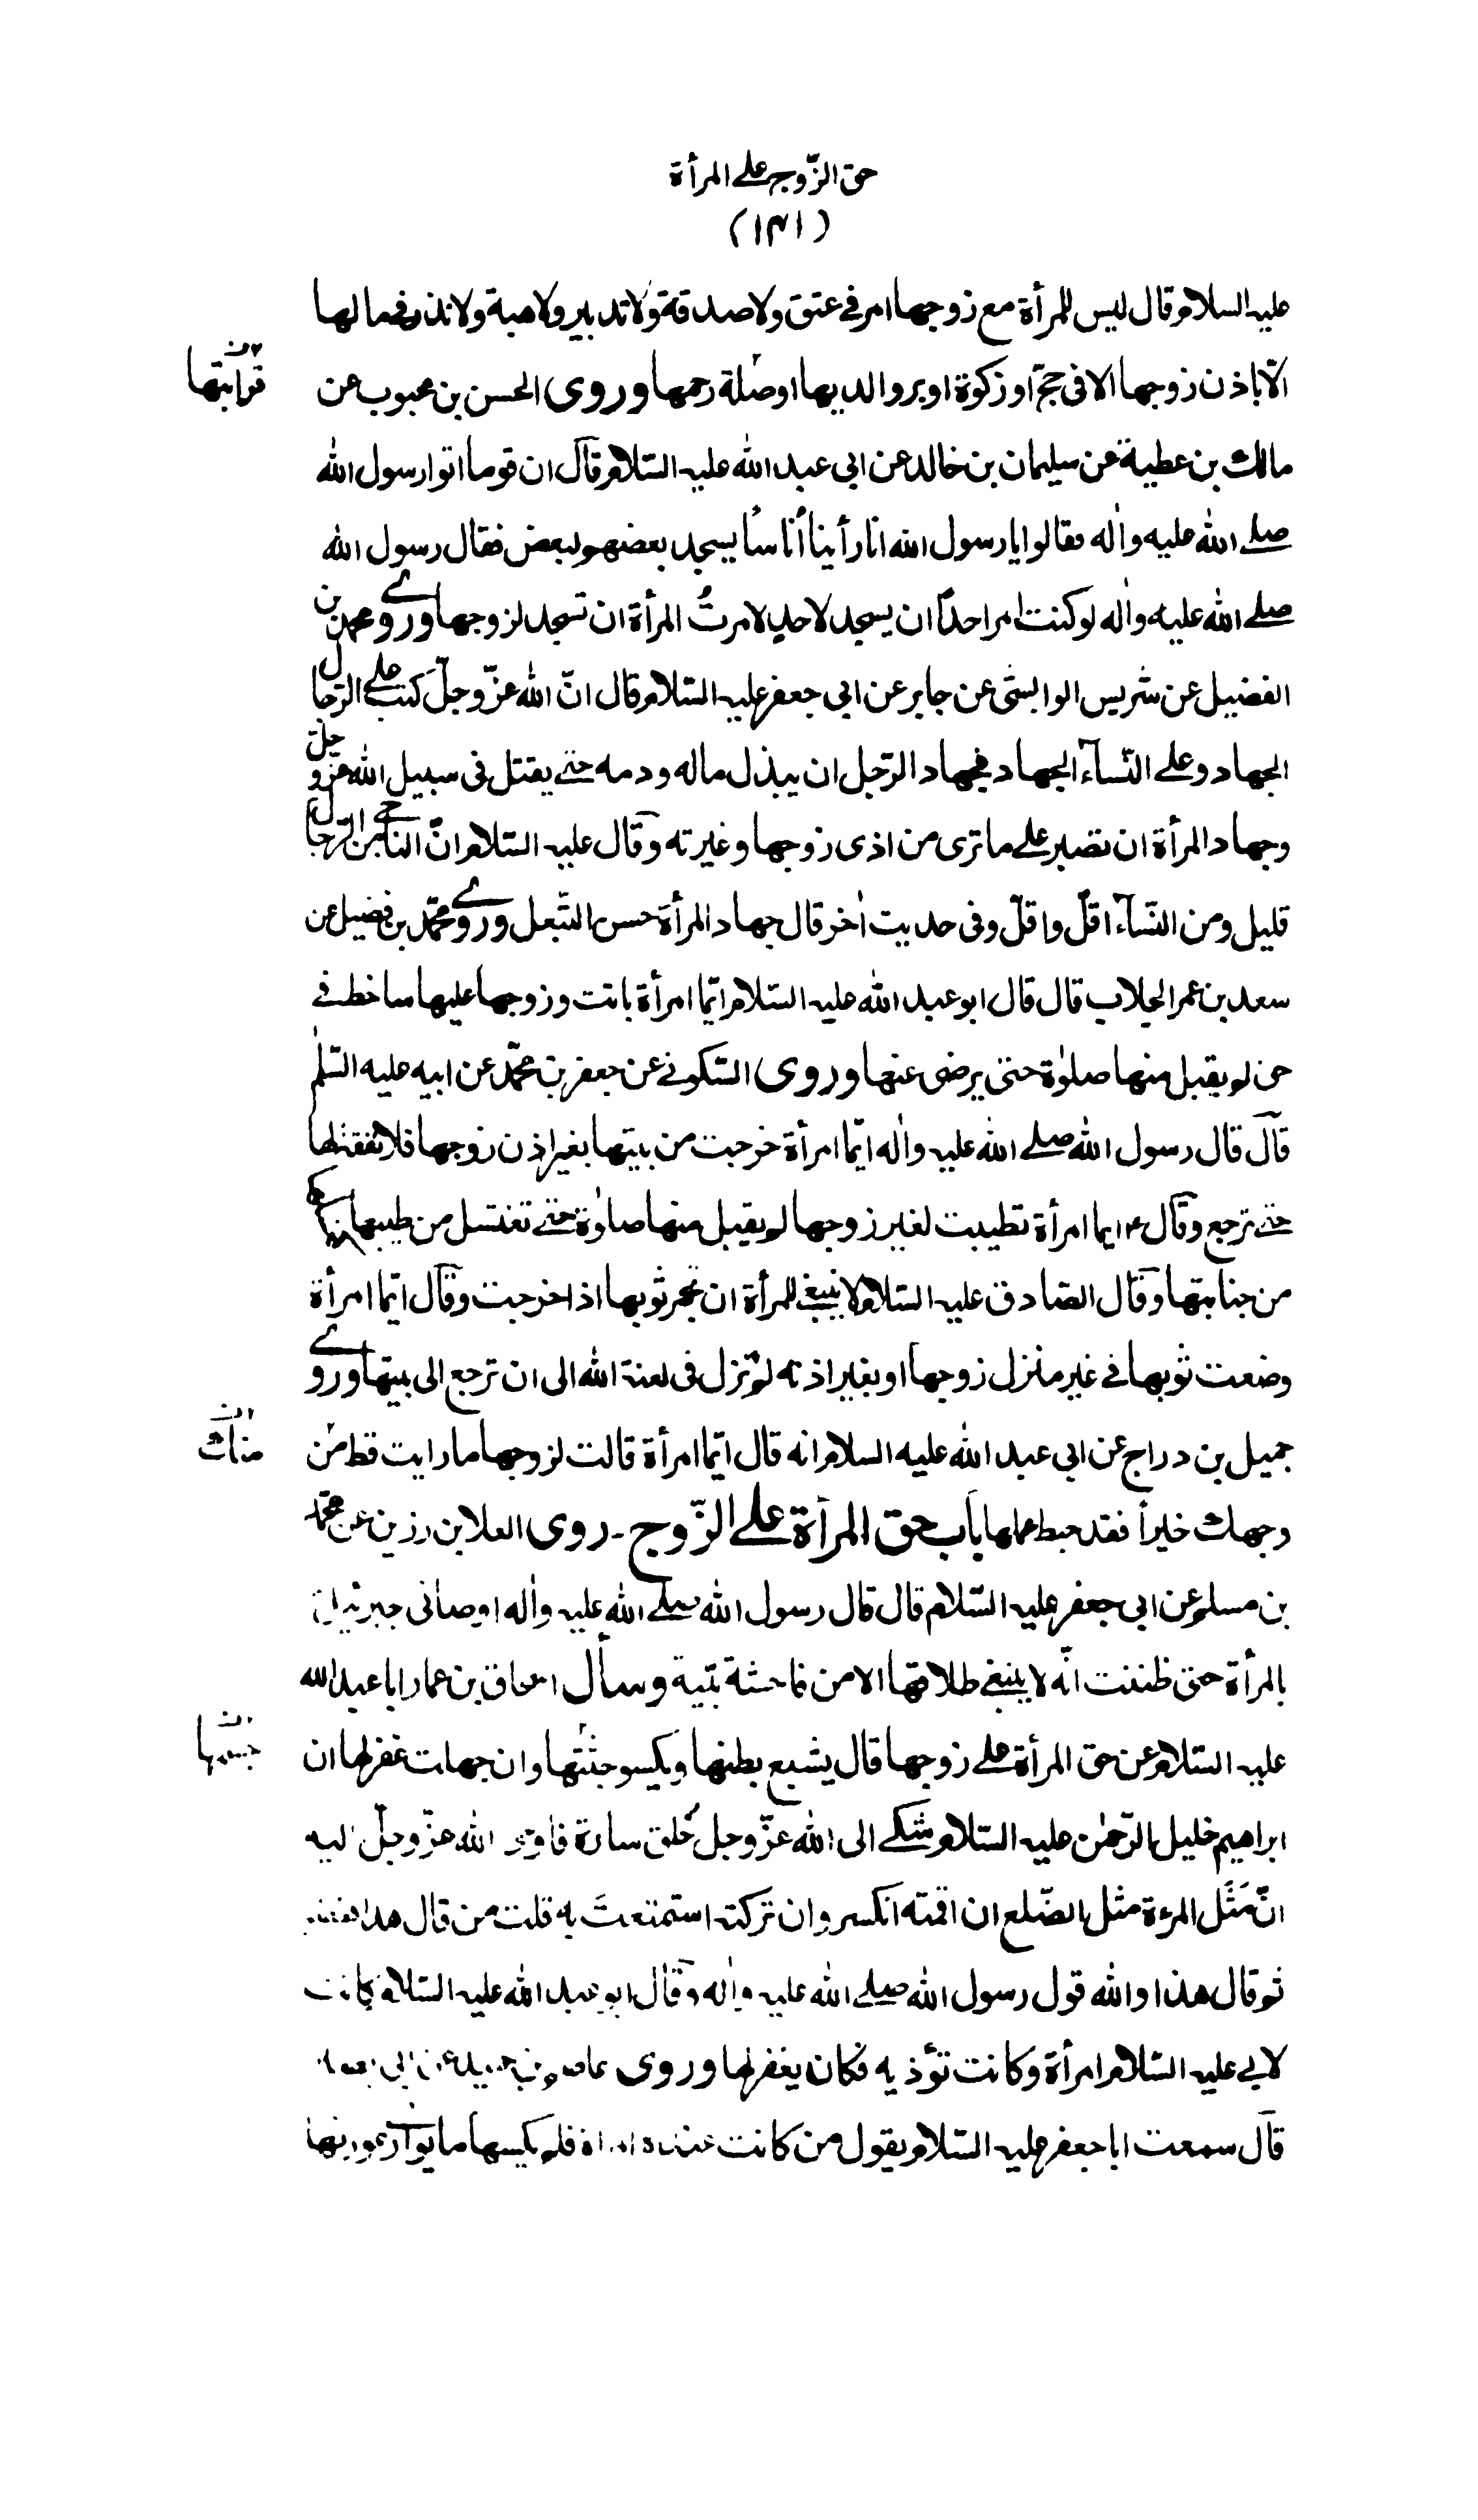 حق الزّوج علے المرأة
(۱۴۱)
علیہ السلام قال لیس للمرأة مع زوجها امر فے عتق ولا صدقة ولا تدبیر ولا هبة ولا نذر فے مالها
الّا باذن زوجها الا فی حجّ او زکوة او بر والدیها او صلة رحمها وروی الحسن بن محبوب عن
قرابتها
مالك بن عطیة عن سلیمان بن خالد عن ابی عبد الله علیہ السّلام قال ان قوما اتوا رسول الله
صلے الله علیه واٰله فقالوا یا رسول الله انا رأینا أناسًا یسجد بعضهم لبعض فقال رسول الله
صلے الله علیه واٰله لو کنت اٰمر احدًا ان یسجد لاحدٍ لامرتُ المرأة ان تسجد لزوجها وروے محمد بن
الفضیل عن شریس الوابشی عن جابر عن ابی جعفر علیہ السّلام قال انّ الله عزّ وجلّ کتب علے الرّجال
الجهاد وعلی النّسآء الجهاد فجهاد الرّجل ان یبذل ماله ودمه حتے یقتل فی سبیل الله عزّ وجلّ
وجهاد المرأة ان تصبر علے ما تری من اذی زوجها وغیرته وقال علیہ السّلام انّ الناجے من الرّجال
قلیل ومن النّسآء اقلّ واقلّ وفی حدیث اٰخر قال جهاد المرأة حسن التّبعل وروے محمّد بن فضیل عن
سعد بن عمر الجلاب قال قال ابو عبد الله علیہ السّلام ایّما امرأة باتت وزوجها علیها ساخط فے
حق لم یقبل منها صلوٰة حتی یرضی عنها وروی السّکونے عن جعفر بن محمّد عن ابیه علیه السّلٰم
قال قال رسول الله صلے الله علیہ واٰله ایّما امرأة خرجت من بیتها بغیر اذن زوجها فلا نفقة لها
حتے ترجع وقال ۴ ایما امرأة تطیبت لغیر زوجها لم یقبل منها صلوٰة حتے تغتسل من طیبها کغسلها
من جنابتها وقال الصّادق علیہ السّلام لا ینبغے للمرأة ان تجمر ثوبها اذا خرجت وقال ایّما امرأة
وضعت ثوبها فے غیر منزل زوجها او بغیر اذنه لم تزل فی لعنة الله الی ان ترجع الی بیتها وروے
جمیل بن دراج عن ابی عبد الله علیه السلام انه قال ایّما امرأة قالت لزوجها ما رایت قط من
منك
وجهك خیرأ فقد حبط عملها باب حق المرأة علے الزّوج ـ روی العلا بن رزین عن محمّد
بن مسلم عن ابی جعفر علیہ السّلام قال قال رسول الله صلے الله علیہ واٰله اوصانی جبرئیل
بالمرأة حتی ظننت انّه لا ینبغے طلاقها الا من فاحشة بیّنة وسأل اسحاق بن عمار ابا عبد الله
علیہ السّلام عن حق المرأة علے زوجها قال یشبع بطنها ویکسو جثّتها وان جهلت غفر لها ان
ابراهیم خلیل الرّحمٰن علیہ السّلام شکے الی الله عزّ وجل خُلق سارة فاوحی الله عزّ وجلّ الیہ
انّ مَثَل المرءة مثل الضّلع ان اقمته انکسر وان ترکتہ استمتعتَ به قلت من قال هذا فغضب
ثم قال هذا والله قول رسول الله صلے الله علیہ واٰله وقال ابو عبد الله علیہ السّلام کانت
لابے علیہ السّلام امرأة وکانت تؤذیه فکان یغفر لها وروی عاصم بن حمید عن ابی بصیر
قال سمعت ابا جعفر علیہ السّلام یقول من کانت عنده امرأة فلم یکسها ما یواری عورتها